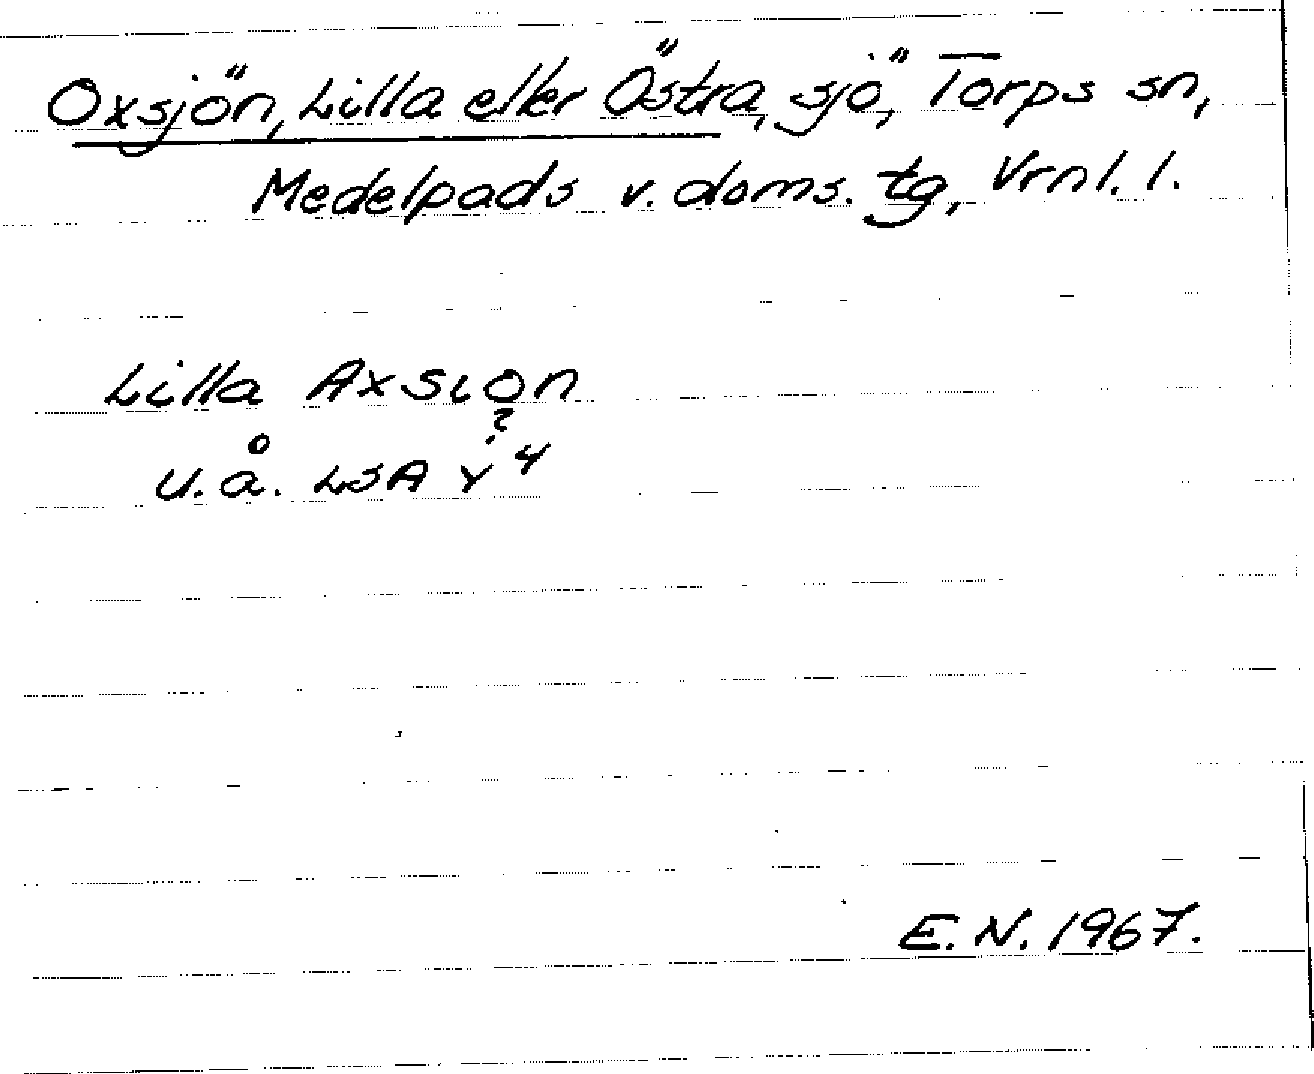 Oxsjön, Lilla eller Östra, sjö, Torps sn,
Medelpads v. doms. tg, Vrnl. l.
Lilla Axsion
?
u.å. LSA Y 4
E. N. 1967.